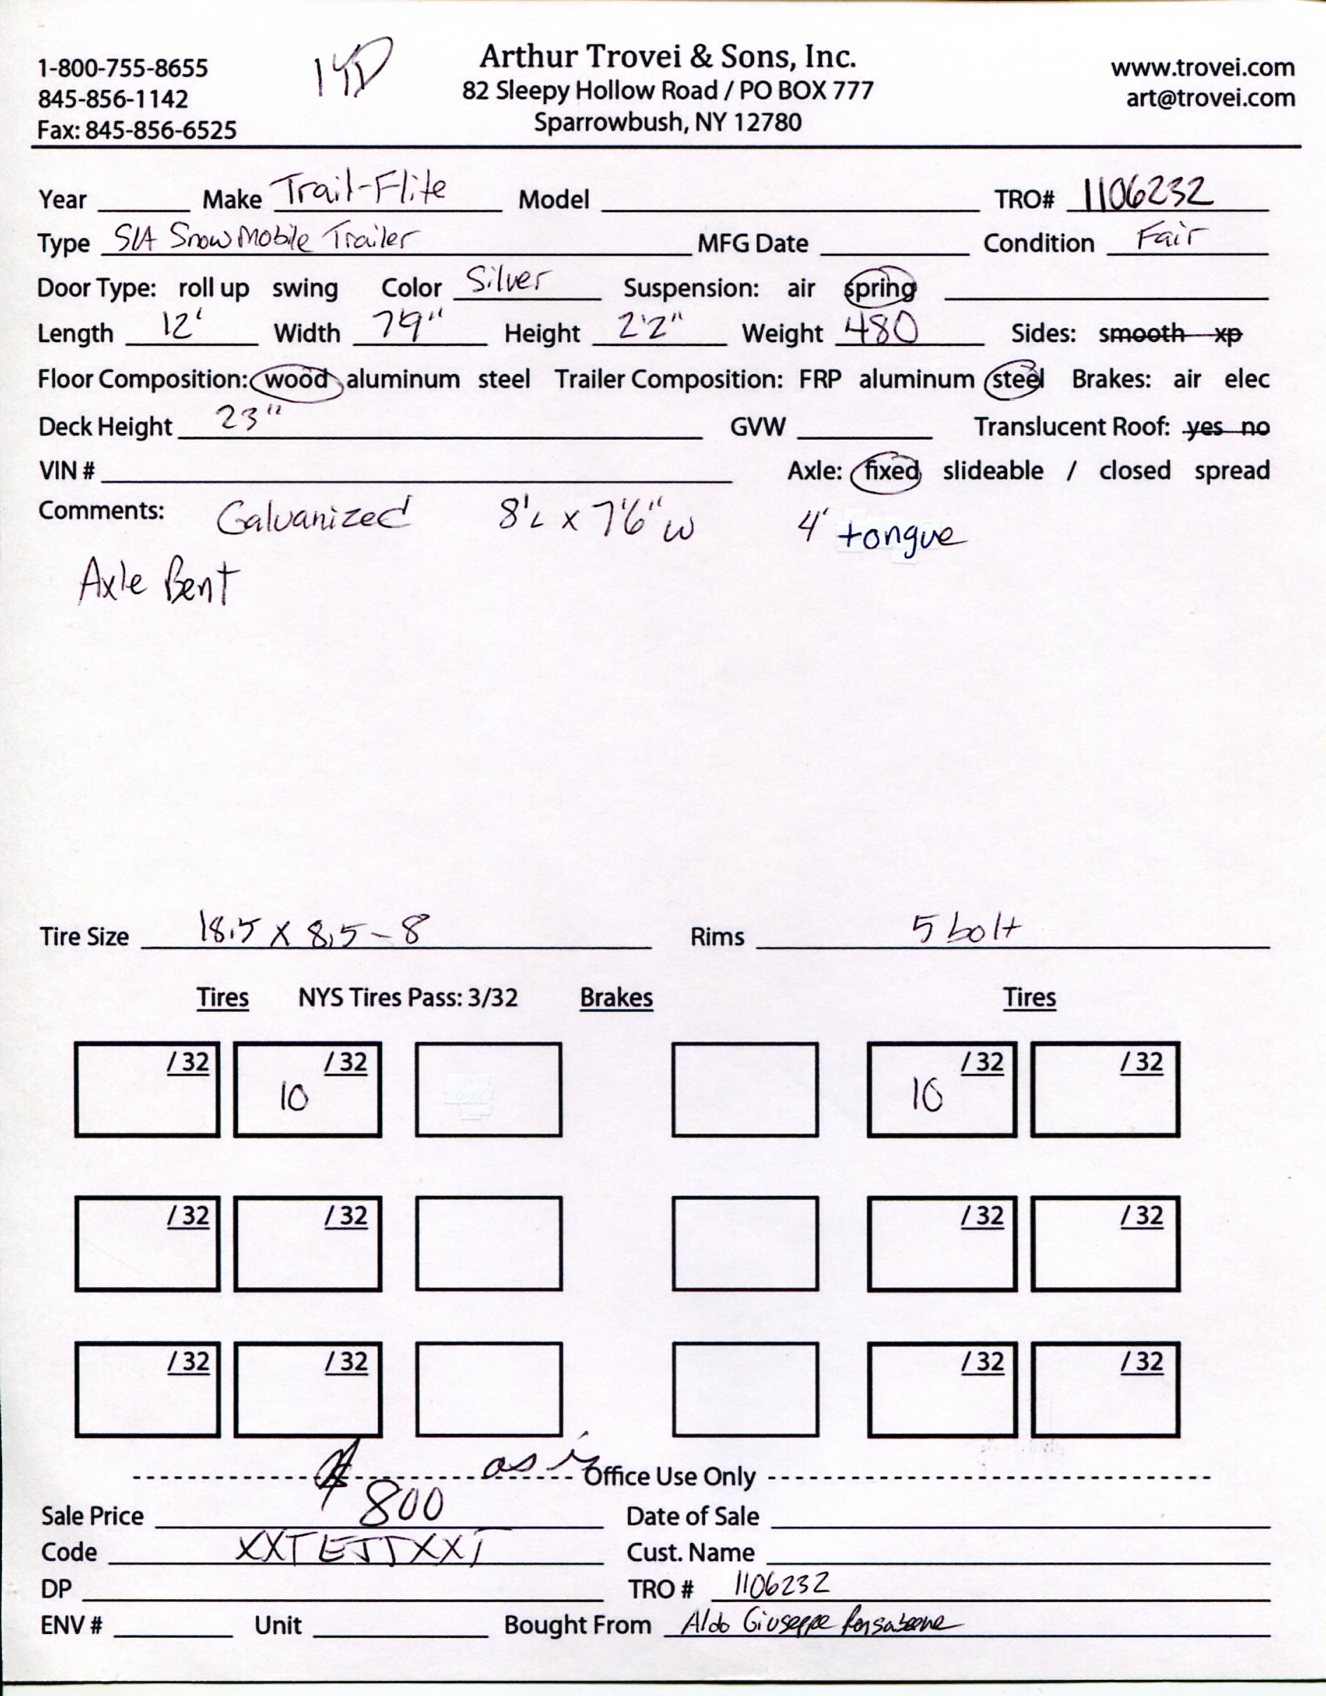 1-800-755-8655
845-856-1142
Fax: 845-856-6525
14D
Arthur Trovei & Sons, Inc.
82 Sleepy Hollow Road / PO BOX 777
Sparrowbush, NY 12780
www.trovei.com
art@trovei.com
Year Make Trail-Flite Model TRO# 1106232
Type S/A SnowMobile Trailer MFG Date Condition Fair
Door Type: roll up swing Color Silver Suspension: air spring
Length 12' Width 79" Height 2'2" Weight 480 Sides: smooth xp
Floor Composition: wood aluminum steel Trailer Composition: FRP aluminum steel Brakes: air elec
Deck Height 23" GVW Translucent Roof: yes no
VIN # Axle: fixed slideable / closed spread
Comments: Galvanized 8'L x 7'6" W 4' tongue
Axle Bent
Tire Size 18.5 x 8.5-8 Rims 5 bolt
Tires NYS Tires Pass: 3/32 Brakes Tires
/32 10 /32 10 /32 /32
/32 /32 /32 /32
/32 /32 /32 /32
as is Office Use Only
Sale Price $800 Date of Sale
Code XXTEJTXXT Cust. Name
DP TRO # 1106232
ENV # Unit Bought From Aldo Giuseppe